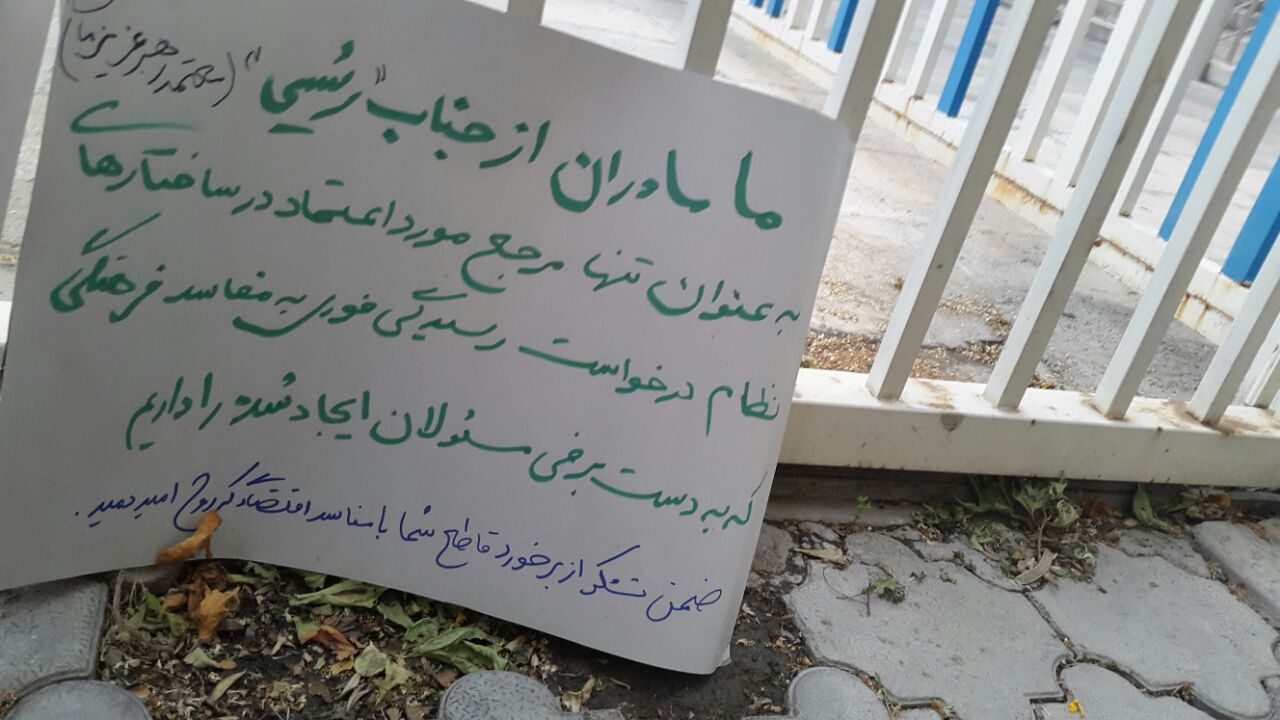 ما مادران از جناب "رئسی" (معتمد رهبر عزیز ما)
به عنوان تنها مرجع مورد اعتماد در ساختارهای
نظام درخواست رسیدگی فوری به مفاسد فرهنگی
که به دست برخی مسئولان ایجاد شده را داریم
ضمن تشکر از برخورد قاطع شما با مفاسد اقتصادی که روح امید دمید.